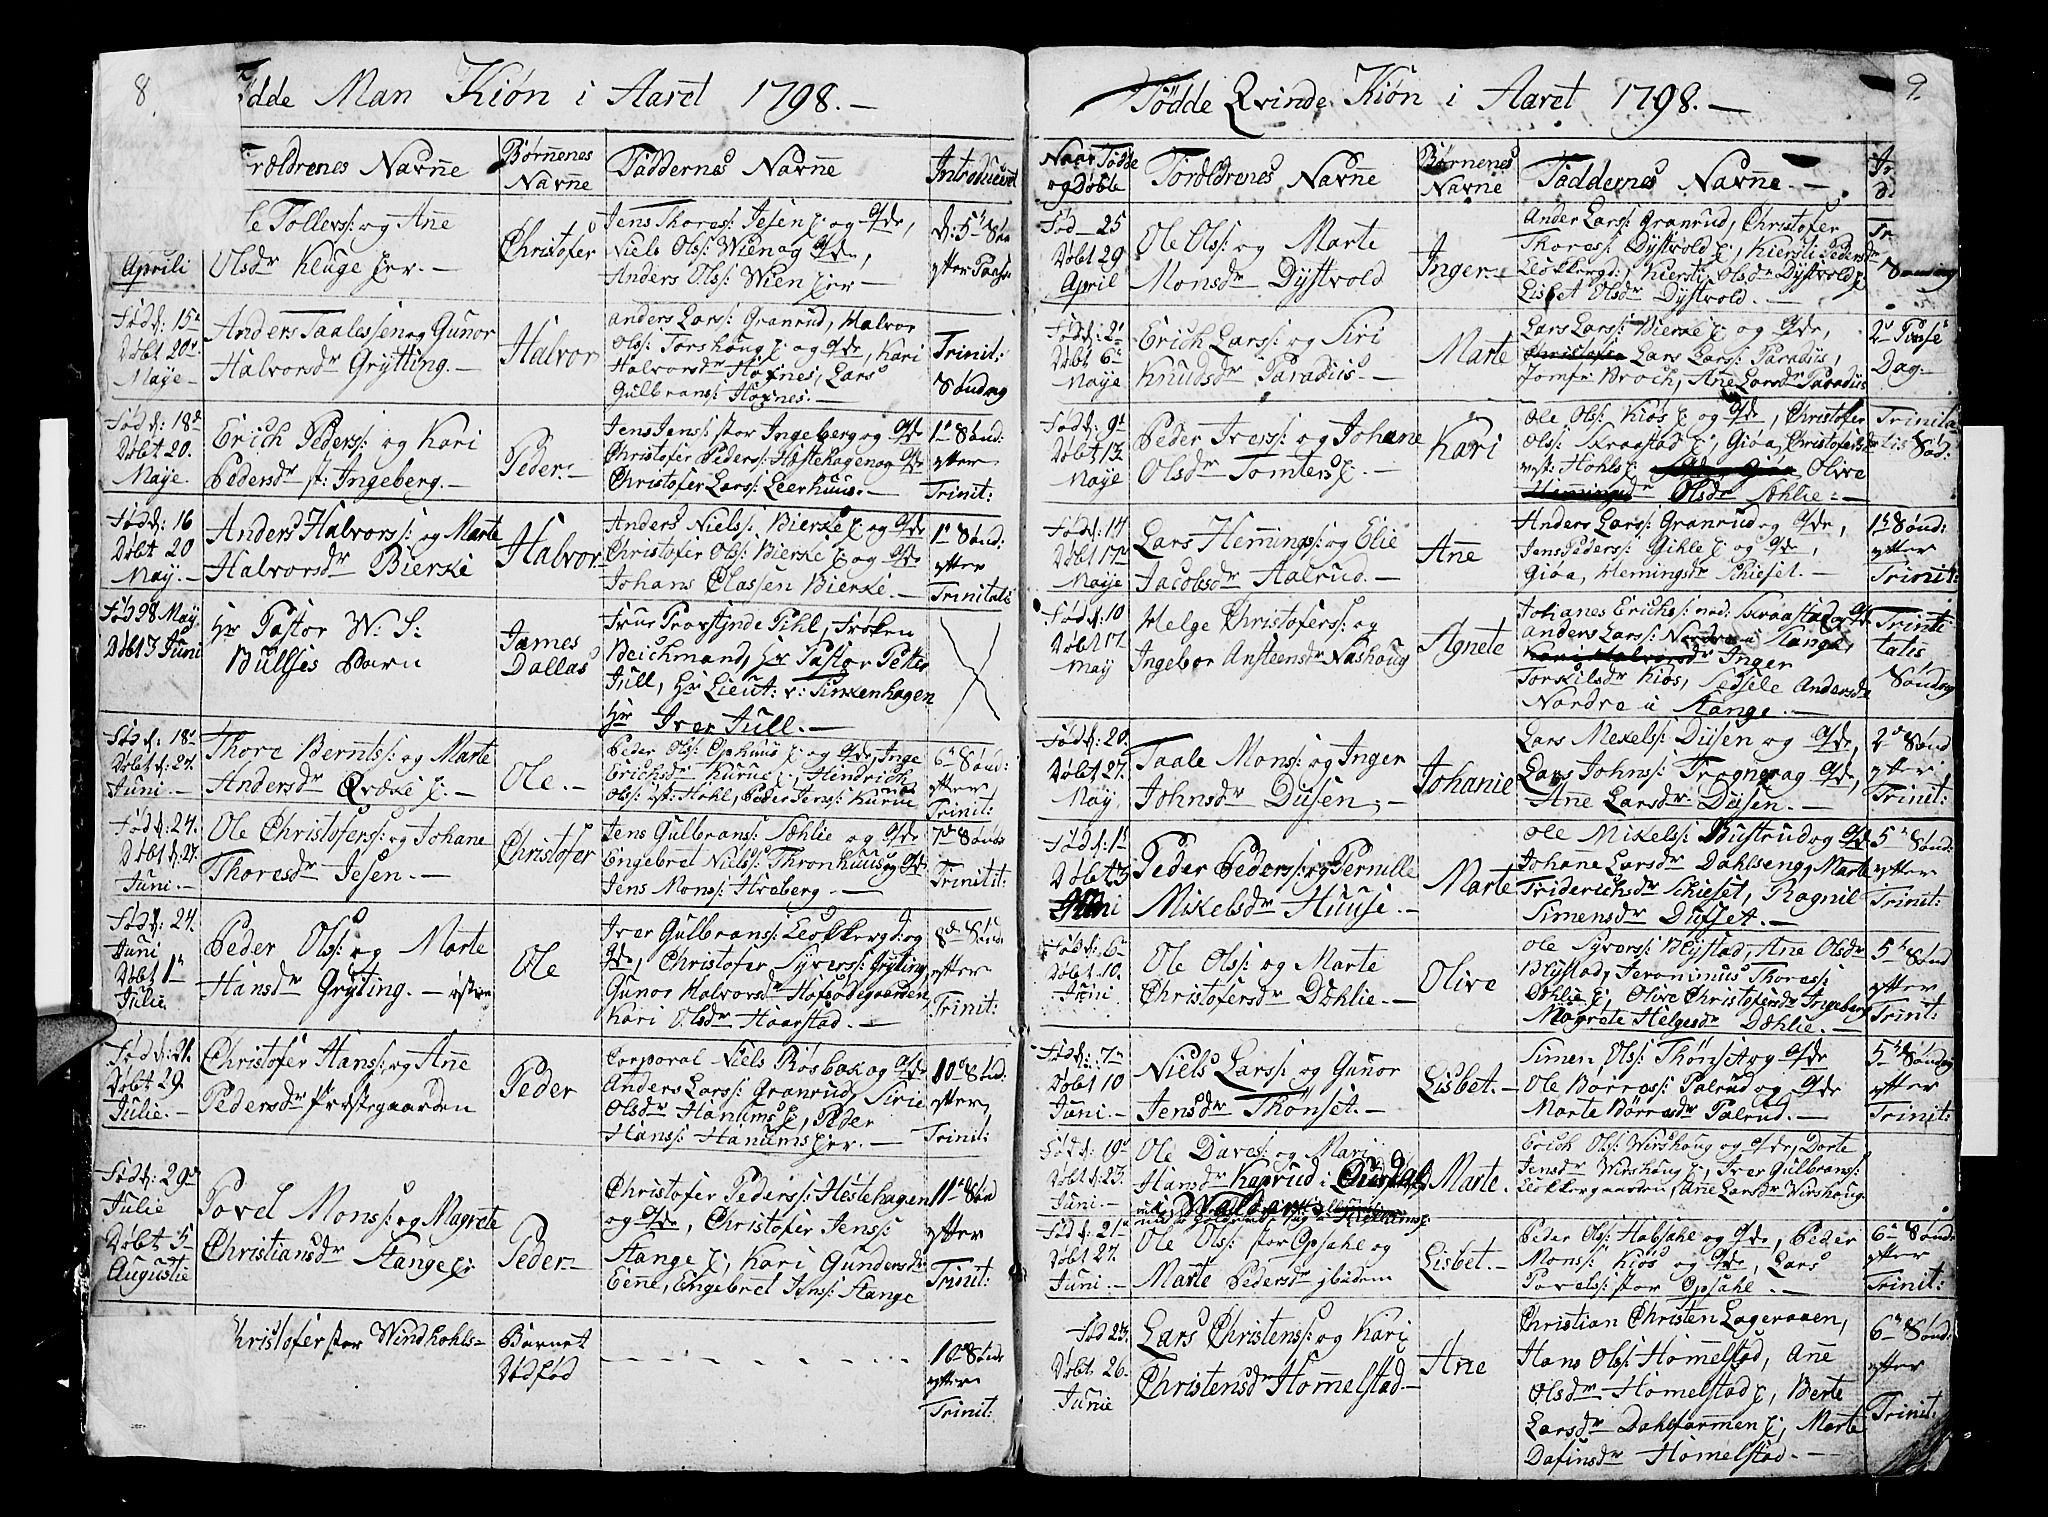 8
Födde Man Kiøn i Aaret 1798. —
Forældrenes Navne
Børnenes Navne
Faddernes Navne
Introduceret
Aprili
Ole Tollers: og Ane
Olsdr Kluge
Christofer
Jens Thores: Jesen E: og q/de,
Niels Ols: Wien og q/de,
Anders Ols: Wien
Fød d: 15de
Døbt 20de
Maye —
Anders Taalessen og Gunor
Halvorsdr Grytting. —
Halvor
Anders Lars: Granrud, Halvor
Ols: Torshoug E: og q/de, Kari
Halvorsdr Hoxnes, Lars
Gulbrans: Hoxnes. —
Trinit:
Søndag
Fød d: 18de
Døbt 20.
Maye.
Erich Peders: og Kari
Pedersdr st: Ingeberg. —
Peder —
Jens Jens: stor Ingeberg og q/de
Christofer Peders: Hestehagen og q/de
Christofer Lars: Leerhuus. —
1te Sønd:
efter
Trinit:
Fød d: 16
Døbt 20
May. —
Anders Halvors: og Marte
Halvorsdr Bierke
Halvor
Anders Niels: Bierke E: og q/de
Christofer Ols: Bierke E: og q/de
Johans Classen Bierke. —
1te Sønd:
efter
Trinitatis
Fød 28 May
Døbt 3 Juni
Hr Pastor W: S:
Bullses Barn
James
Dallas
Frue Provstinde Pihl, Frøken
Beichmand, Hr Pastor Petter
Jull, Hr Lieut: v: Sinkenhagen
Hr Iver Jull. —
Fød d: 18de
Døbt d: 24.
Juni. —
Thore Bernts: og Marte
Andersdr Ørdke E: —
Ole. —
Peder Ols: Ophuus E: og q/de, Inge
Erichsdr Kurue E:, Hendrich
Ols: st: Hohl, Peder Jens: Kurue
6te Sønd:
efter
Trinit:
Fød d: 24.
Døbt d: 27.
Juni. —
Ole Christofers: og Johane
Thoresdr Jesen. —
Christofer
Jens Gulbrans: Dæhlie og q/de
Engebret Niels: Thronhuus og q/de
Jens Mons: Hroberg. —
7de Sønd:
Trinit:
Fød d: 24.
Juni
Døbt 1te
Julie
Peder Ols: og Marte
Hansdr Grytting. — østre
Ole
Iver Gulbrans: Leökkergd: og
q/de, Christofer Syvers: Grytting,
Gunor Halvorsdr Hofsødegaarden
Kari Olsdr Haarstad. —
8de Sønd:
efter
Trinit:
Fød d: 21.
Døbt 29
Julie. —
Christofer Hans: og Ane
Pedersdr Prestegaarden
Peder
Corporal Niels Rösbak og q/de
Anders Lars: Granrud, Sirie
Olsdr Hanums E:, Peder
Hans: Hanums Eier. —
10de Sønd:
efter
Trinit:
Fød d: 29de
Julie
Døbt 5
Augustie
Povel Mons: og Magrete
Christiansdr Stange E:
Peder —
Christofer Peders: Hestehagen
og q/de, Christofer Jens:
Stange E:, Kari Gundersdr:
Eene, Engebret Jens: Stange
11te Sønd
efter
Trinit:
Christofer stor Windhohls —
Barnet
Dødfød
10de Sønd:
efter
Trinit:
9.
Födde Qvinde Kiøn i Aaret 1798. —
Naar Fødde
og Døbte
Forældrenes Navne
Børnenes
Navne
Faddernes Navne. —
Fød — 25
Døbt 29
April
Ole Ols: og Marte
Monsdr Dystvold
Inger —
Ander Lars: Granrud, Christofer
Thores: Dystvold E:, Kiersti Pedersdr
Leökkergd:, Kiersti Olsdr Dystvold E:
Lisbet Olsdr Dystvold. —
Tr
Søndag
Fød d: 2de
Døbt 6te
Maye
Erich Lars: og Siri
Knudsdr Paradiis. —
Marte
Lars Lars: Bierke E: og q/de,
Christofer Lars Lars: Paradiis,
Jomfr: Broch, Ane Larsdr Paradiis
2de Pinse
Dag —
Fød d: 9de
Døbt 13.
Maye
Peder Ivers: og Johane
Olsdr Tomters E. —
Kari
Ole Ols: Kiös E: og q/de, Christofer
Ols: Skraastad E:, Giöa, Christofersdr
vest: Hohls E: Olive
Hemmingsdr Olsdr Dæhlie: —
Trinita
tis Sød:
Fød d: 14
Døbt 17de
Maye
Lars Hemings: og Elie
Jacobsdr Aalrud. —
Ane
Anders Lars: Granrud og q/de,
Jens Peders: Gihle E: og q/de,
Giöa, Hemingsdr Schieset. —
1te Sønd:
efter
Trinit:
Fød d: 10
Døbt 17
May
Helge Christofers: og
Ingebor Ansteensdr Nashoug
Agnete
Johanes Erichs: ned: Skraastad og q/de
Anders Lars: Nordre i Stange,
Kari Halvorsdr Inger
Torkilsdr Kiös, Sedsele Andersdr
Nordre i Stange. —
Trinita
tatis
Søndag
Fød d: 20.
Døbt 27.
May
Taale Mons: og Inger
Johnsdr Dusen; —
Johanie
Lars Mekels: Düsen og q/de,
Lars Johns: Trogner og q/de,
Ane Larsdr Düsen. —
2de Sønd
efter
Trinit:
Fød d: 1te
Døbt 3
Juni
Peder Peders: og Pernille
Mikelsdr Huuse. —
Marte
Ole Mikels: Bustrud og q/de
Johane Larsdr Dahlseng, Marte
Friderichsdr Schieset, Ragnil
Simensdr Dufset. —
5te Sønd:
efter
Trinit:
Fød d: 6te
Døbt 10.
Juni
Ole Ols: og Marte
Christofersdr Døhlie. —
Olive
Ole Syvers: Blystad, Ane Olsdr
Blystad, Jeronimus Thores:
Døhlie E:, Olive Christofersdr Ingeberg
Magrete Helgesdr Dæhlie. —
5te Sønd
efter
Trinit:
Fød d: 7de
Døbt 10
Juni. —
Niels Lars: og Gunor
Jensdr Thönset. —
Lisbet. —
Simen Ols: Thönset og q/de
Ole Börres: Palrud og q/de
Marte Börresdr Palrud. —
5te Søndag
efter
Trinit:
Fød d: 19de
Døbt d: 23.
Juni —
Ole Daves: og Mari
Hansdr Kaprud i
Marte.
Erich Ols: Wirshoug og q/de, Dorte
Jensdr Widshoug E:, Iver Gulbrans:
Leökkergaarden, Ane Larsdr Wirshoug.
Fød d: 21de
Døbt 27.
Juni —
Ole Ols: stor Opsahl og
Marte Pedersdr ibidem
Lisbet. —
Peder Ols: Habsahl og q/de, Peder
Mons: Kiös og q/de, Lars
Povels: stor Opsahl. —
6te Sønd:
efter
Trinit:
Fød 23.
Døbt 26.
Junie
Lars Christens: og Kari
Christensdr Homelstad —
Ane
Christian Christen Lageraaen,
Hans Ols: Homelstad, Ane
Olsdr Homelstad E:, Berte
Larsdr Dahlsarmen E:, Marte
Dafinsdr Homelstad. —
6te Sønd:
efter
Trinit: